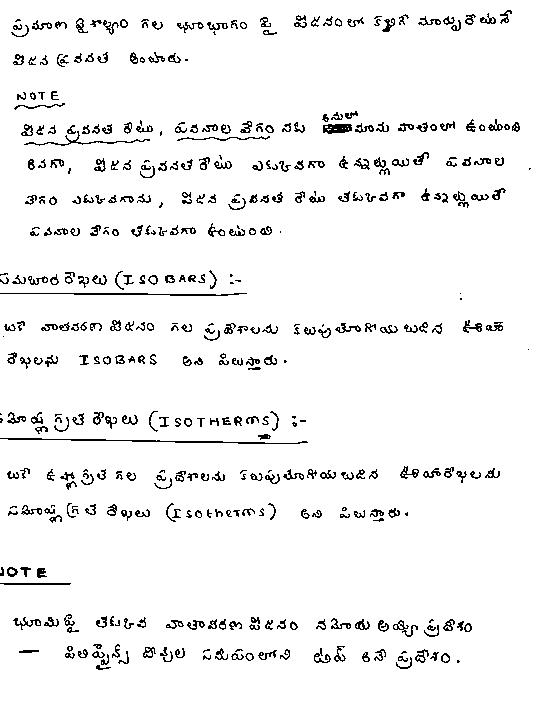 ప్రమాణ వైశాల్యం గల భూభాగం పై పీడనంలో కల్గే మార్పురేటునే
పీడన ప్రవనత అంటారు.
NOTE
పీడన ప్రవనత రేటు, పవనాల వేగం నకు అనులోమాను పాతంలో ఉంటుంది
అనగా, పీడన ప్రవనత రేటు ఎక్కువగా ఉన్నట్లయితే పవనాల
వేగం ఎక్కువగాను, పీడన ప్రవనత రేటు తక్కువగా ఉన్నట్లయితే
పవనాల వేగం తక్కువగా ఉంటుంది.
సమభార రేఖలు (ISOBARS) :-
ఒకే వాతావరణ పీడనం గల ప్రదేశాలను కలుపుతూగీయబడిన ఊహా
రేఖలను ISOBARS అని పిలుస్తారు.
సమోష్ణగ్రత రేఖలు (ISOTHERMS) :-
ఒకే ఉష్ణోగ్రత గల ప్రదేశాలను కలుపుతూగీయబడిన ఊహారేఖలను
సమోష్ణగ్రత రేఖలు (Isotherms) అని పిలుస్తారు.
NOTE
భూమిపై తక్కువ వాతావరణ పీడనం నమోదు అయ్యే ప్రదేశం
— ఫిలిప్పైన్స్ దీవుల సమీపంలోని అనే ప్రదేశం.